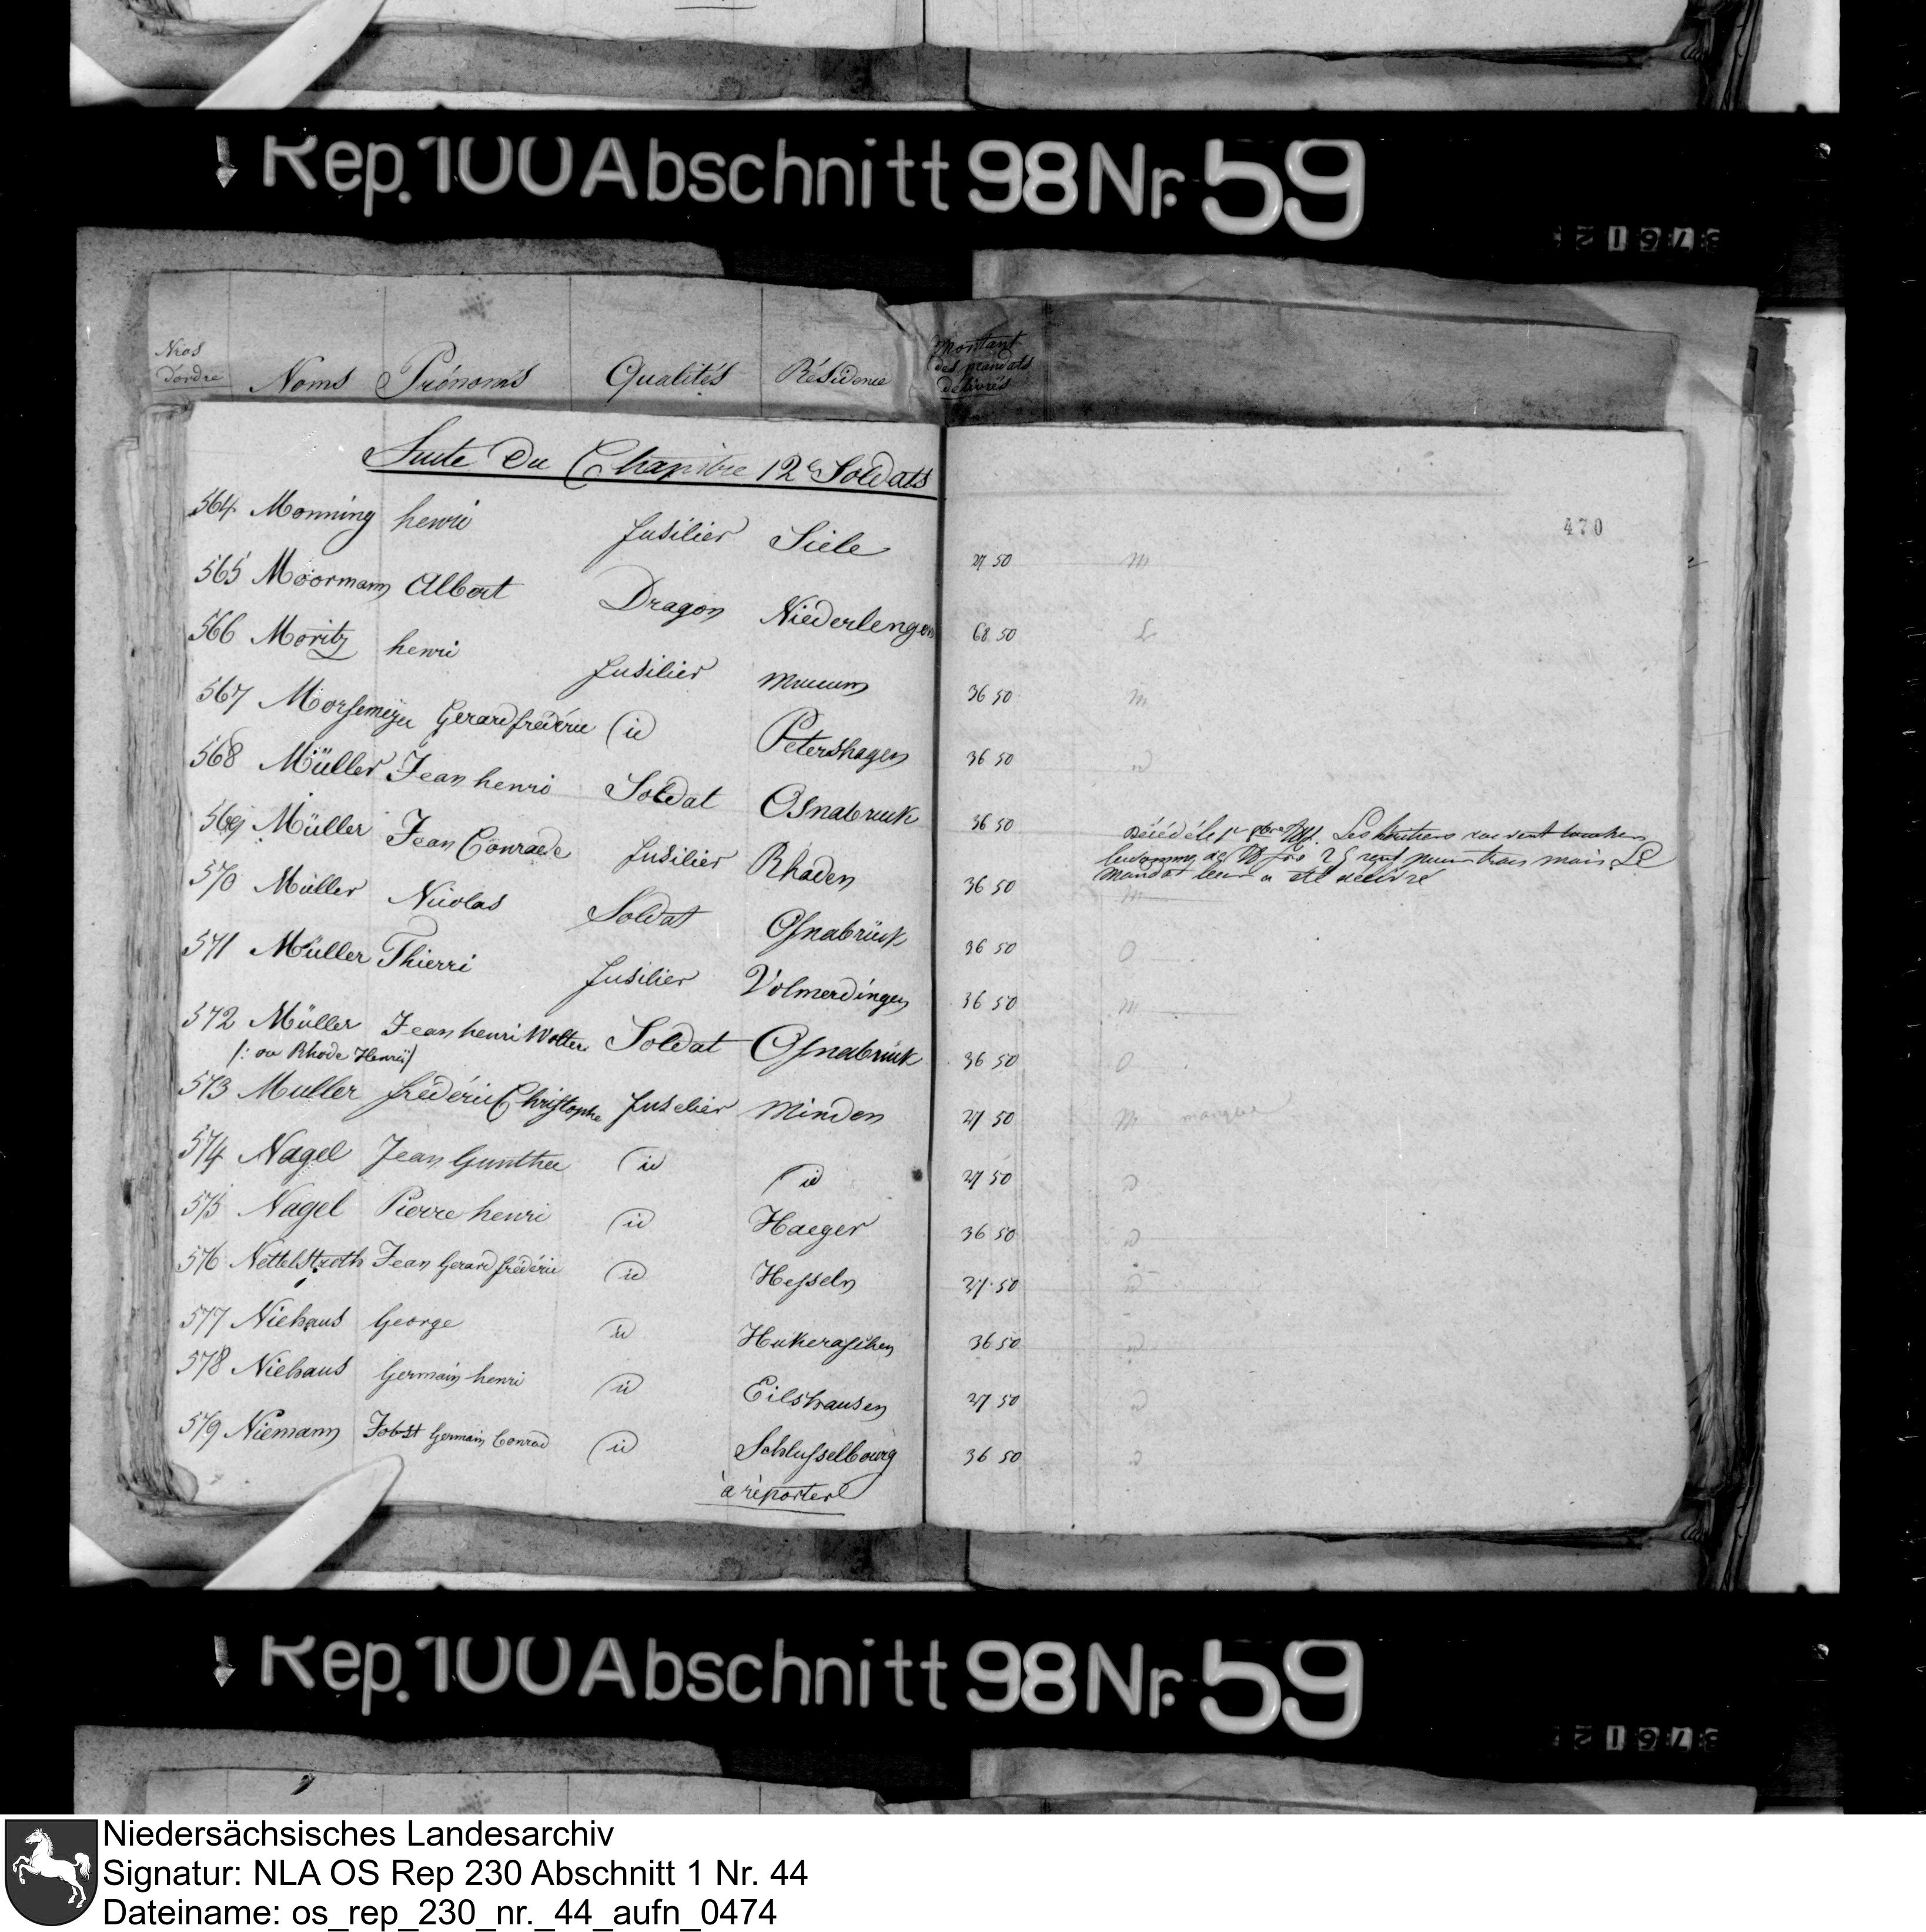 Rep. 100 Abschnitt 98 Nr. 59
Nros d'ordre Noms Prénoms Qualités Résidence Montant des mandats délivrés
Suite Du Chapitre 12e Soldats
470
564 Monning henri fusilier Siele 27 50 m
565 Moormann Albert Dragon Niederlengen 68 50
566 Moritz henri fusilier 36 50 m
567 Morsemeÿer Gerard frédéric id Petershagen 36 50
568 Müller Jean henri Soldat Osnabruck 36 50
569 Müller Jean Conrade fusilier Rhaden 36 50
Décédé le 1er 9bre Les héritiers
mois Le
mandat leur a été délivré
m
570 Müller Nicolas Soldat Osnabrück 36 50 O
571 Müller Thierri fusilier Volmerdingen 36 50 m
572 Müller Jean henri Wolter Soldat Osnabrück 36 50 O
/: ou Rhode Henri/
573 Muller frédéric Christophe fuselier Minden 27 50 m
574 Nagel Jean Gunther id id 27 50
575 Nagel Pierre henri id Haeger 36 50
576 Nettelstroth Jean Gerard frédéric id Hesseln 27 50
577 Niehaus George id 36 50
578 Niehaus Germain henri id Eilshausen 27 50
579 Niemann Jobst Germain Conrad id Schlusselbourg 36 50
à réporter
Rep. 100 Abschnitt 98 Nr. 59
Niedersächsisches Landesarchiv
Signatur: NLA OS Rep 230 Abschnitt 1 Nr. 44
Dateiname: os_rep_230_nr._44_aufn_0474